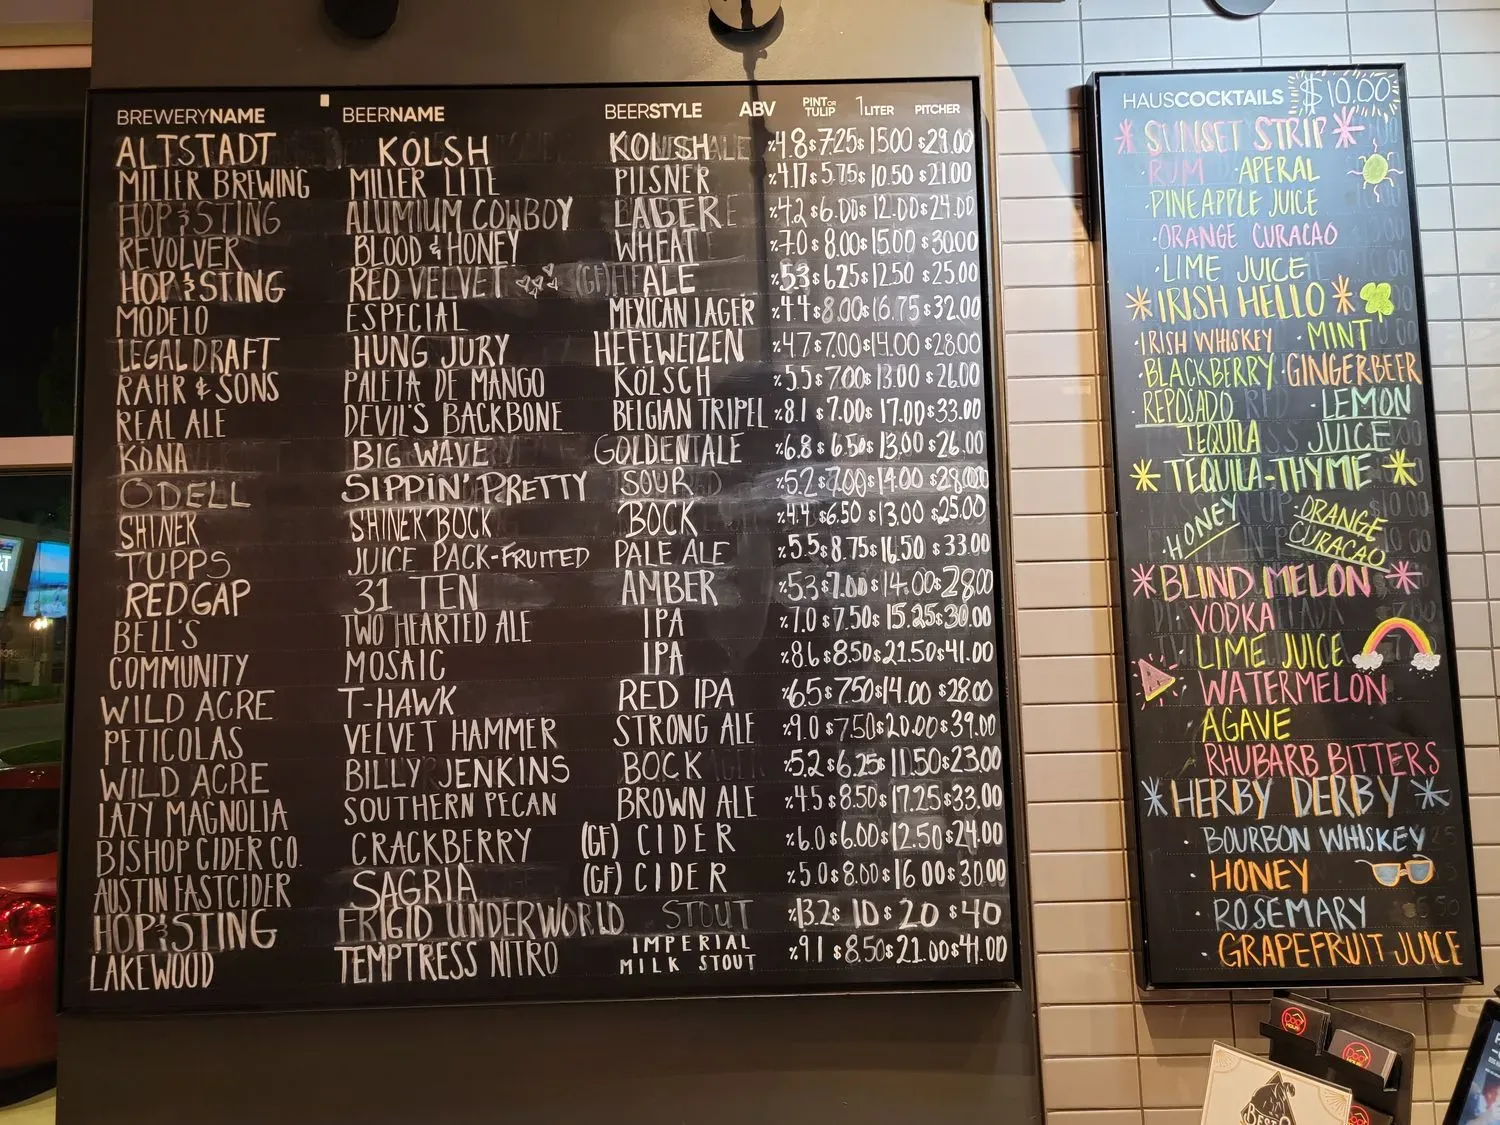 BREWERYNAME BEERNAME BEERSTYLE ABV PINT OR TULIP 1 LITER PITCHER
ALTSTADT KOLSH KOLSH %4.8 $7.25 $15.00 $29.00
MILLER BREWING MILLER LITE PILSNER %4.17 $5.75 $10.50 $21.00
HOP & STING ALUMIUM COWBOY LAGER %4.2 $6.00 $12.00 $24.00
REVOLVER BLOOD & HONEY WHEAT %7.0 $8.00 $15.00 $30.00
HOP & STING RED VELVET ALE %5.3 $6.25 $12.50 $25.00
MODELO ESPECIAL MEXICAN LAGER %4.4 $8.00 $16.75 $32.00
LEGALDRAFT HUNG JURY HEFEWEIZEN %4.7 $7.00 $14.00 $28.00
RAHR & SONS PALETA DE MANGO KÖLSCH %5.5 $7.00 $13.00 $26.00
REAL ALE DEVIL'S BACKBONE BELGIAN TRIPEL %8.1 $7.00 $17.00 $33.00
KONA BIG WAVE GOLDEN ALE %6.8 $6.50 $13.00 $26.00
ODELL SIPPIN' PRETTY SOUR %5.2 $7.00 $14.00 $28.00
SHINER SHINER BOCK BOCK %4.4 $6.50 $13.00 $25.00
TUPPS JUICE PACK-FRUITED PALE ALE %5.5 $8.75 $16.50 $33.00
REDGAP 31 TEN AMBER %5.3 $7.00 $14.00 $28.00
BELL'S TWO HEARTED ALE IPA %7.0 $7.50 $15.25 $30.00
COMMUNITY MOSAIC IPA %8.6 $8.50 $21.50 $41.00
WILD ACRE T-HAWK RED IPA %6.5 $7.50 $14.00 $28.00
PETICOLAS VELVET HAMMER STRONG ALE %9.0 $7.50 $20.00 $39.00
WILD ACRE BILLY JENKINS BOCK %5.2 $6.25 $11.50 $23.00
LAZY MAGNOLIA SOUTHERN PECAN BROWN ALE %4.5 $8.50 $17.25 $33.00
BISHOP CIDER CO. CRACKBERRY (GF) CIDER %6.0 $6.00 $12.50 $24.00
AUSTIN EASTCIDER SAGRIA (GF) CIDER %5.0 $8.00 $16.00 $30.00
HOP & STING FRIGID UNDERWORLD STOUT %13.2 $10 $20 $40
LAKEWOOD TEMPTRESS NITRO IMPERIAL MILK STOUT %9.1 $8.50 $21.00 $41.00
HAUSCOCKTAILS $10.00
SUNSET STRIP
·RUM ·APERAL
·PINEAPPLE JUICE
·ORANGE CURACAO
·LIME JUICE
IRISH HELLO
·IRISH WHISKEY ·MINT
·BLACKBERRY ·GINGERBEER
·REPOSADO TEQUILA ·LEMON JUICE
TEQUILA-THYME
·HONEY ·ORANGE CURACAO
BLIND MELON
·VODKA
·LIME JUICE
WATERMELON
AGAVE
RHUBARB BITTERS
HERBY DERBY
·BOURBON WHISKEY
·HONEY
·ROSEMARY
·GRAPEFRUIT JUICE